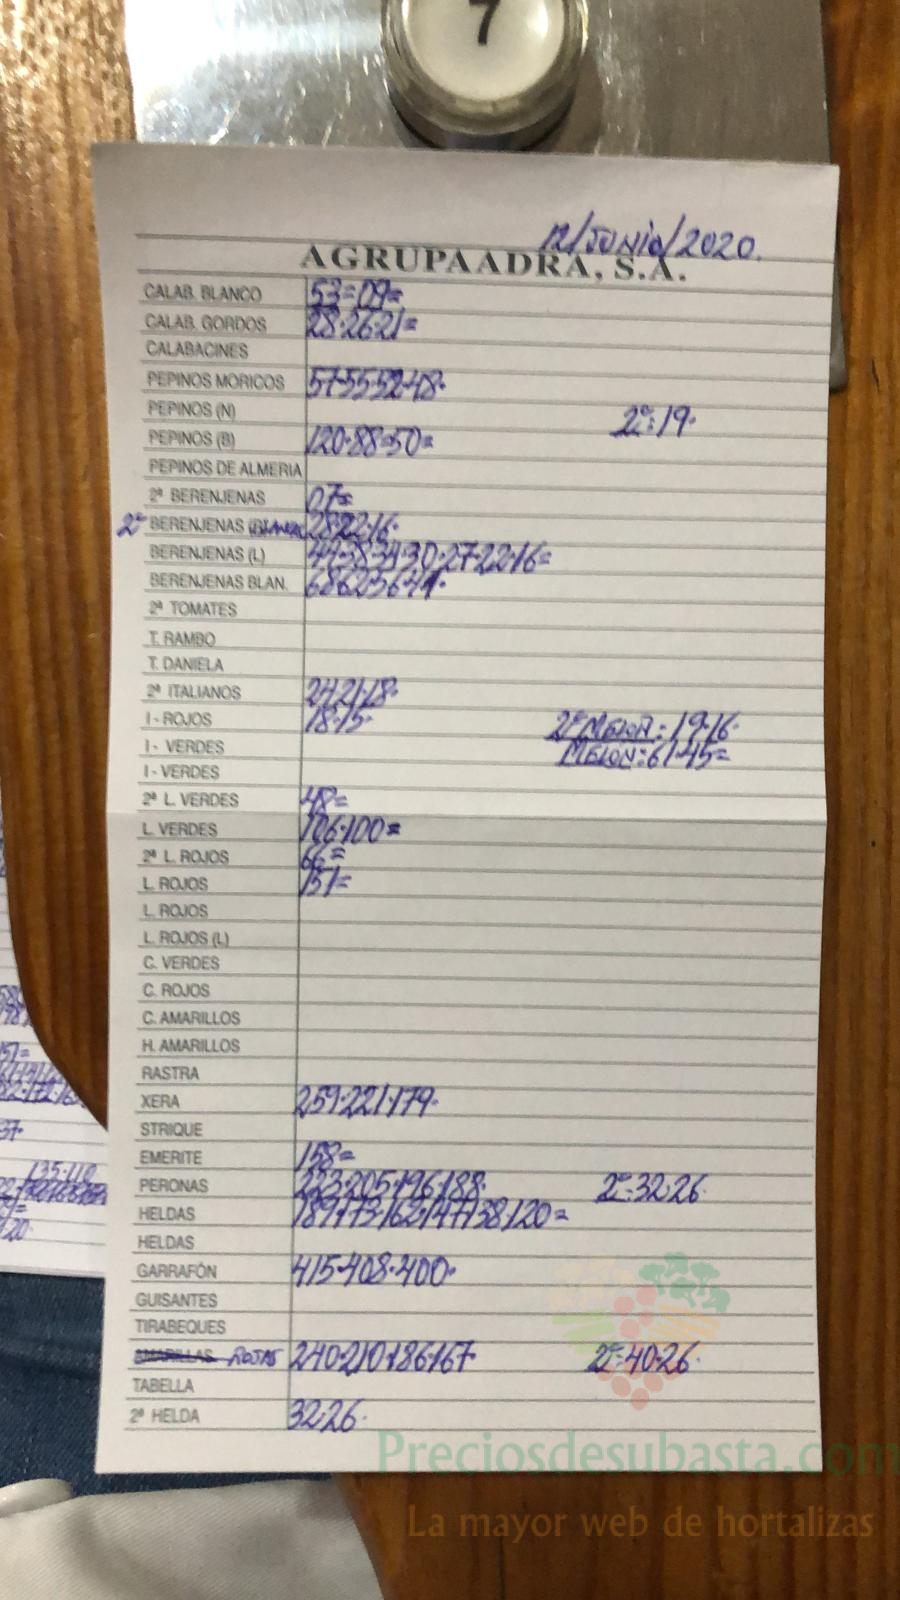 7
12/JUNIO/2020.
AGRUPAADRA, S.A.
CALAB. BLANCO 53=09=
CALAB. GORDOS 28·26·21=
CALABACINES
PEPINOS MORICOS 57·55·52·48·
PEPINOS (N) 2ª:19·
PEPINOS (B) 120·88=50=
PEPINOS DE ALMERIA
2ª BERENJENAS 07=
2ª BERENJENAS 28·22·16·
BERENJENAS (L) 44·38·34·30·27·22·16=
BERENJENAS BLAN. 68·62·56·41·
2ª TOMATES
T. RAMBO
T. DANIELA
2ª ITALIANOS 24·21·18·
I - ROJOS 18·15· 2ª MELON: 19·16·
I - VERDES MELON: 61·45=
I - VERDES
2ª L. VERDES 48=
L. VERDES 106·100=
2ª L. ROJOS 66=
L. ROJOS 151=
L. ROJOS
L. ROJOS (L)
C. VERDES
C. ROJOS
C. AMARILLOS
H. AMARILLOS
RASTRA
XERA 259·221·179·
STRIQUE
EMERITE 158=
PERONAS 223·205·196·188· 2ª:32·26·
HELDAS 189·173·162·147·138·120=
HELDAS
GARRAFÓN 415·408·400·
GUISANTES
TIRABEQUES
AMARILLAS ROJAS 240·210·186·167· 2ª:40·26·
TABELLA
2ª HELDA 32·26·
Preciosdesubasta.com
La mayor web de hortalizas